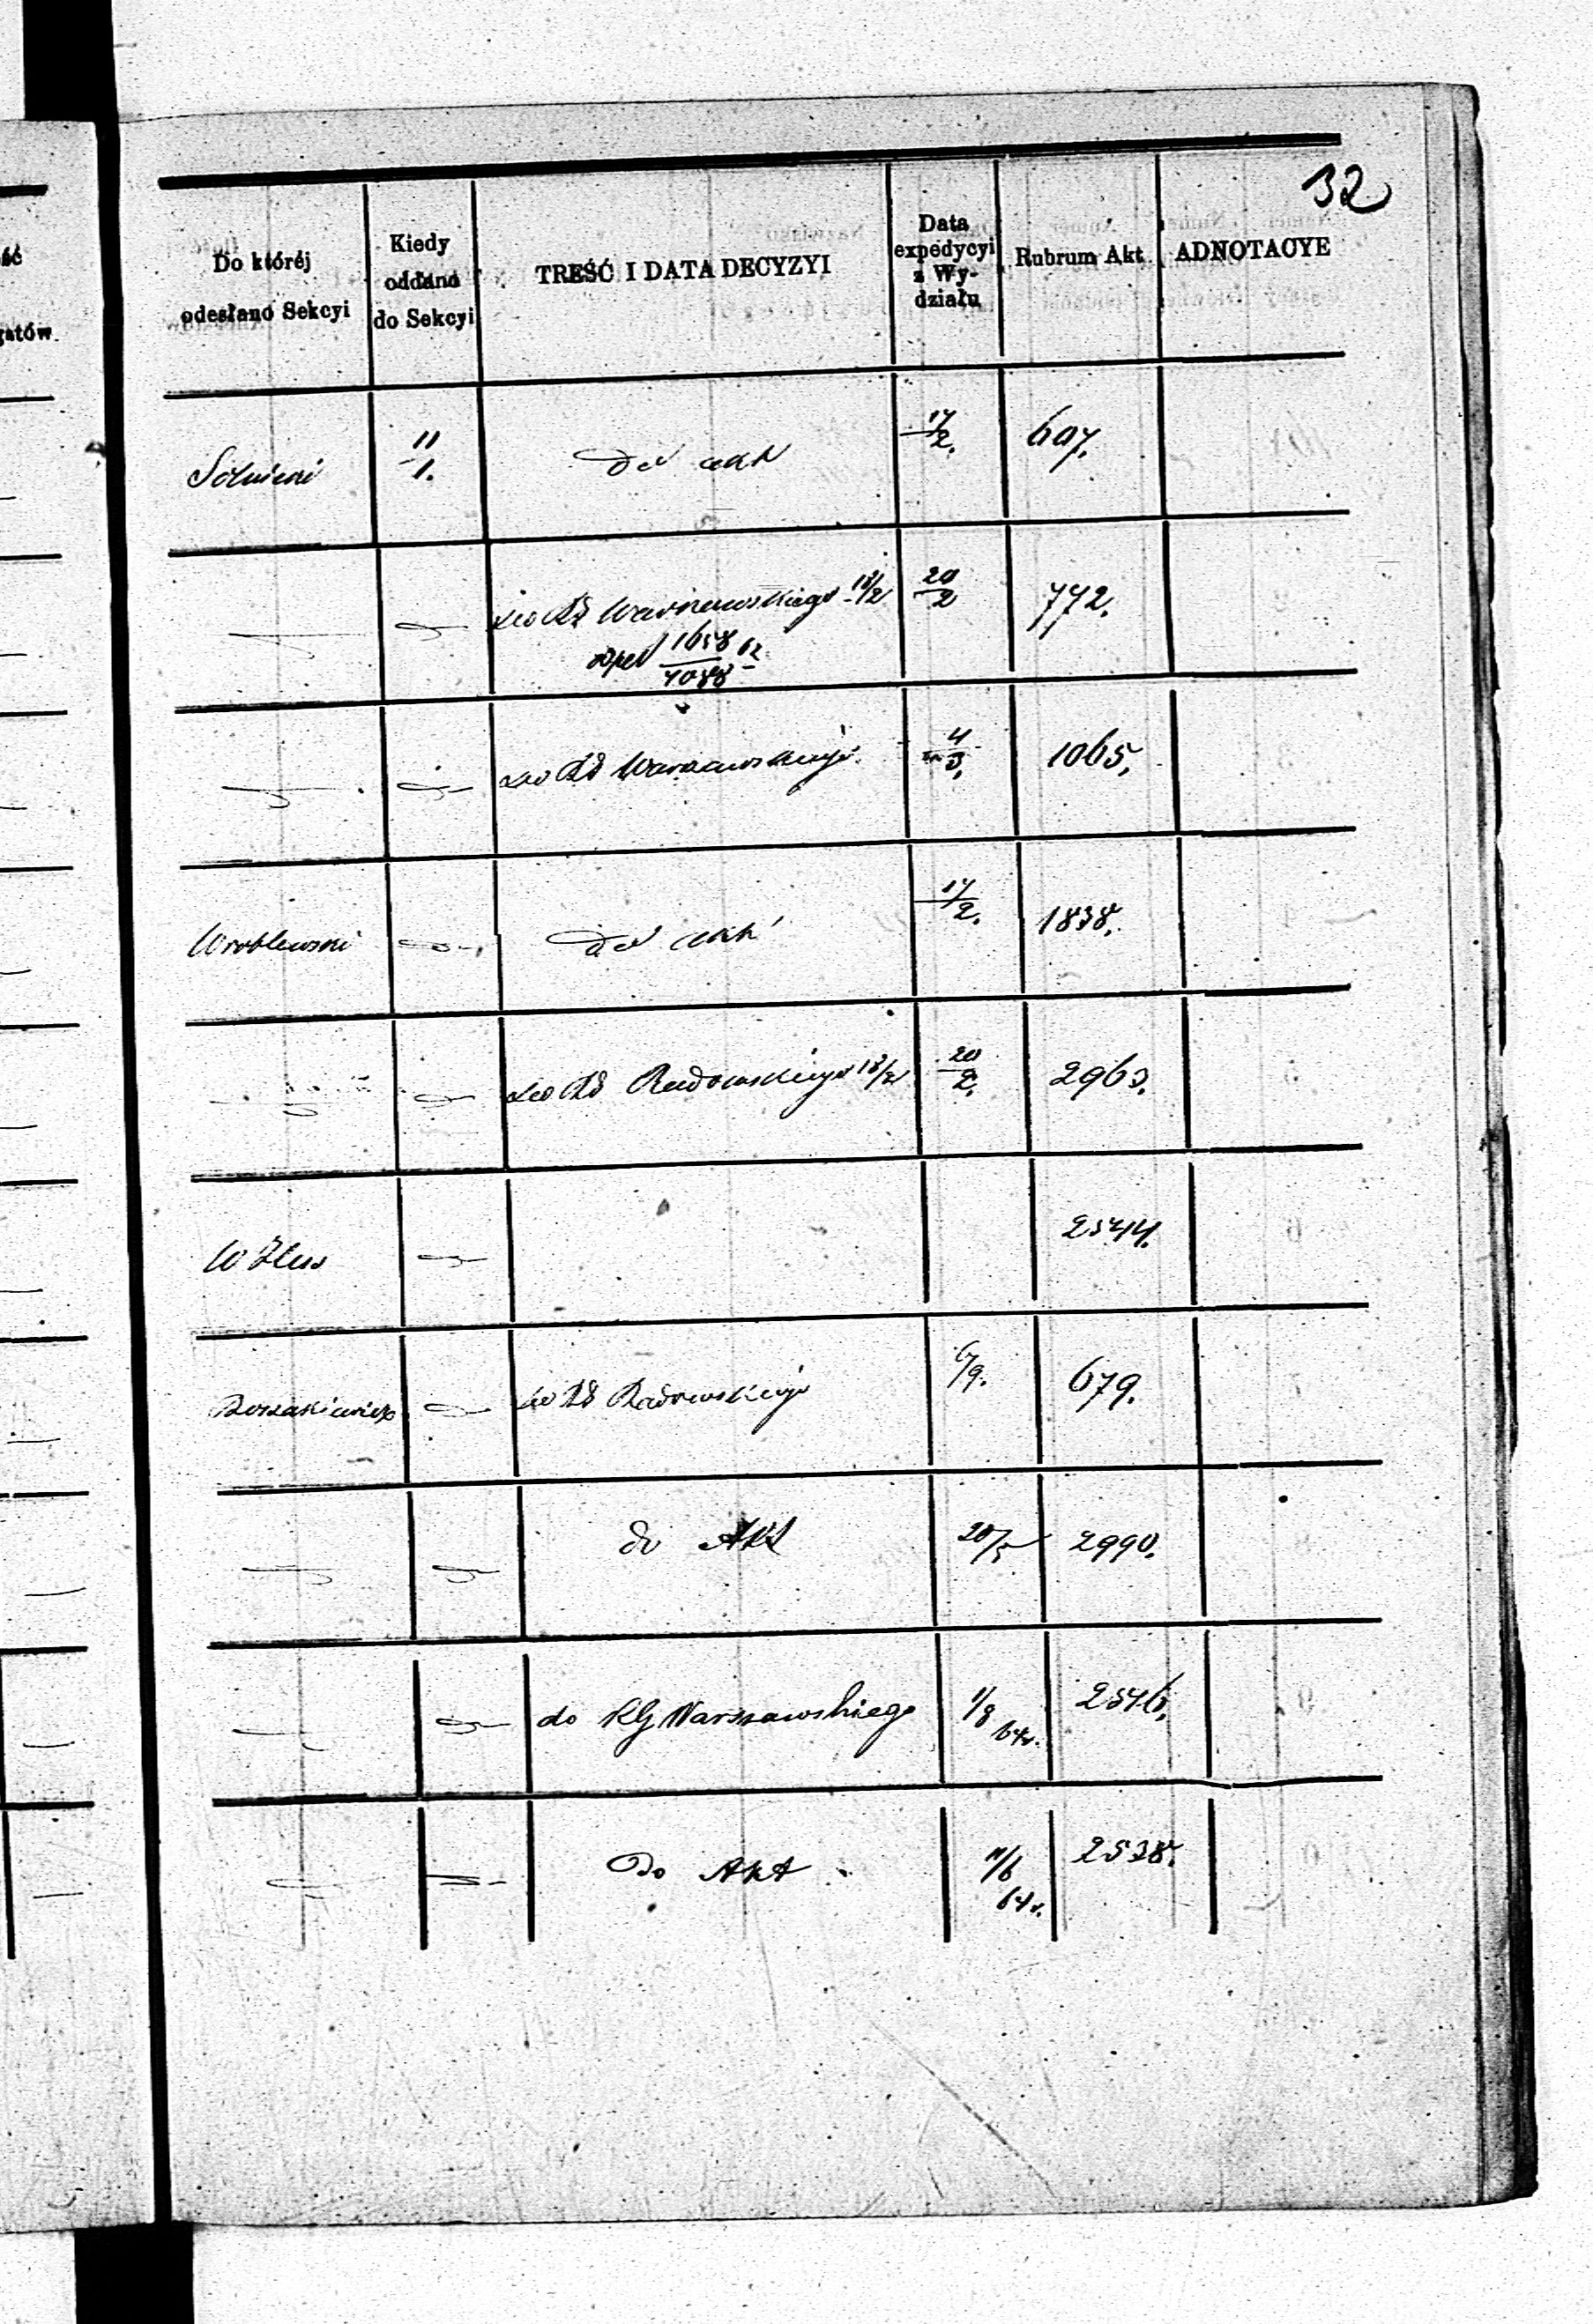 32
ść
gatów.
Do któréj
odesłano Sekcyi
Kiedy
oddano
do Sekcyi
TREŚĆ I DATA DECYZYI
Data
expedycyi
z Wy-
działu
Rubrum Akt
ADNOTACYE
11/1.
do akt
17/2.
607.
do RG Warszawskiego 18/2
20/2
772.
1658/4088 62
do RG Warszawskiego
4/3.
1065.
Wroblewski
do akt
17/2.
1838.
do RG Radomskiego 18/2
20/2.
2963.
2544.
do RG Radomskiego
6/9.
679.
do Akt
20/5
2990.
do RG Warszawskiego
1/8 64r.
2546.
Do Akt
11/6 64r.
2538.